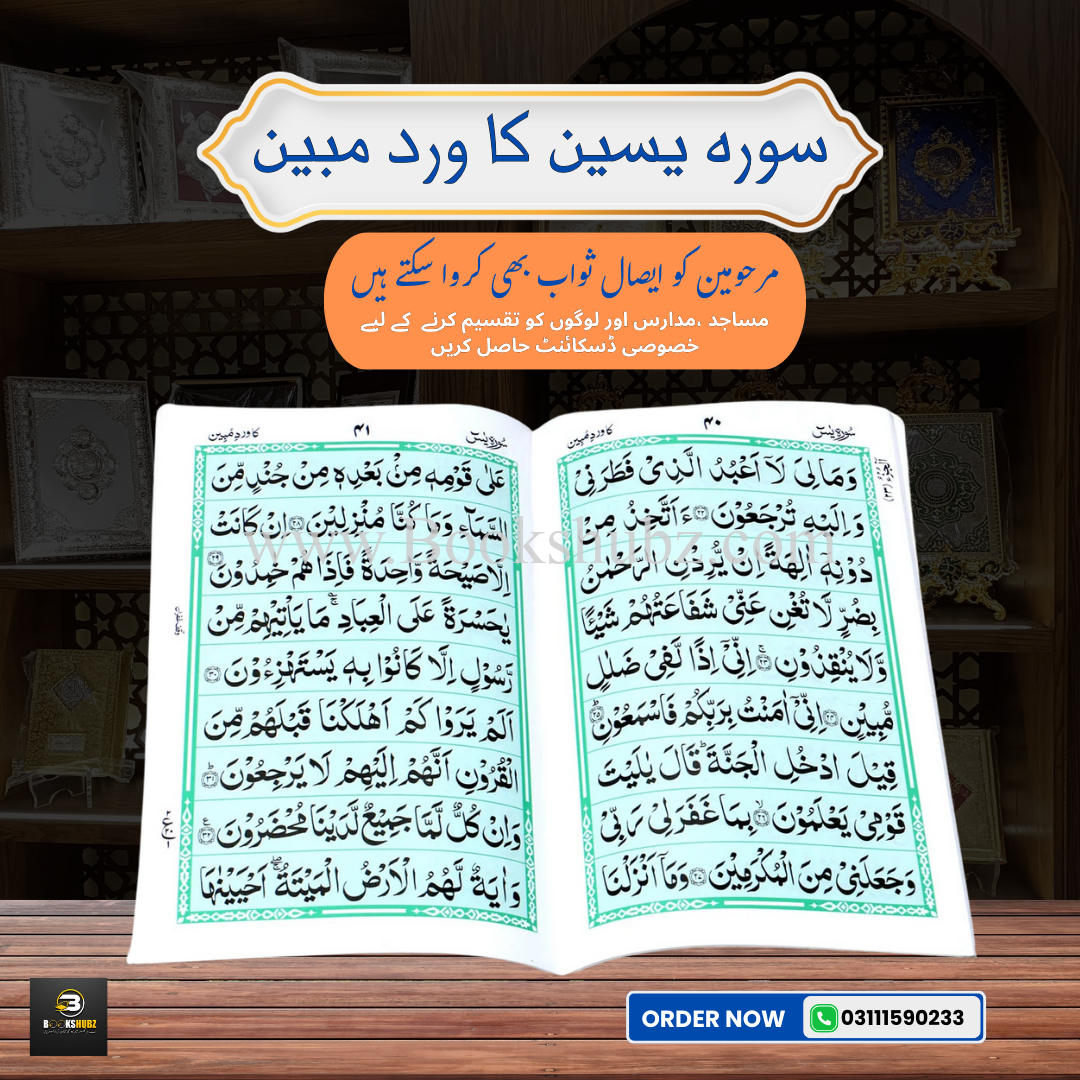 سورہ یسین کا ورد مبین
مرحومین کو ایصال ثواب بھی کروا سکتے ہیں
مساجد ،مدارس اور لوگوں کو تقسیم کرنے کے لیے
خصوصی ڈسکائنٹ حاصل کریں
سُورہ یٰسٓ ۴۰ کا وردِ مُبین
وَمَا لِیَ لَاۤ اَعْبُدُ الَّذِیْ فَطَرَنِیْ
وَ اِلَیْهِ تُرْجَعُوْنَ ﴿۲۲﴾ ءَاَتَّخِذُ مِنْ
دُوْنِهٖۤ اٰلِهَةً اِنْ یُّرِدْنِ الرَّحْمٰنُ
بِضُرٍّ لَّا تُغْنِ عَنِّیْ شَفَاعَتُهُمْ شَیْـًٔا
وَّلَا یُنْقِذُوْنِ ﴿۲۳﴾ اِنِّیْۤ اِذًا لَّفِیْ ضَلٰلٍ
مُّبِیْنٍ ﴿۲۴﴾ اِنِّیْۤ اٰمَنْتُ بِرَبِّكُمْ فَاسْمَعُوْنِ ﴿۲۵﴾
قِیْلَ ادْخُلِ الْجَنَّةَ ؕ قَالَ یٰلَیْتَ
قَوْمِیْ یَعْلَمُوْنَ ﴿۲۶﴾ بِمَا غَفَرَ لِیْ رَبِّیْ
وَجَعَلَنِیْ مِنَ الْمُكْرَمِیْنَ ﴿۲۷﴾ وَمَاۤ اَنْزَلْنَا
سُورہ یٰسٓ ۴۱ کا وردِ مُبین
عَلٰی قَوْمِهٖ مِنْۢ بَعْدِهٖ مِنْ جُنْدٍ مِّنَ
السَّمَآءِ وَمَا كُنَّا مُنْزِلِیْنَ ﴿۲۸﴾ اِنْ كَانَتْ
اِلَّا صَیْحَةً وَّاحِدَةً فَاِذَا هُمْ خٰمِدُوْنَ ﴿۲۹﴾
یٰحَسْرَةً عَلَی الْعِبَادِ ۚ مَا یَاْتِیْهِمْ مِّنْ
رَّسُوْلٍ اِلَّا كَانُوْا بِهٖ یَسْتَهْزِءُوْنَ ﴿۳۰﴾
اَلَمْ یَرَوْا كَمْ اَهْلَكْنَا قَبْلَهُمْ مِّنَ
الْقُرُوْنِ اَنَّهُمْ اِلَیْهِمْ لَا یَرْجِعُوْنَ ﴿۳۱﴾
وَاِنْ كُلٌّ لَّمَّا جَمِیْعٌ لَّدَیْنَا مُحْضَرُوْنَ ﴿۳۲﴾
وَاٰیَةٌ لَّهُمُ الْاَرْضُ الْمَیْتَةُ ۚ اَحْیَیْنٰهَا
www.Bookshubz.com
BOOKSHUBZ
ORDER NOW 03111590233